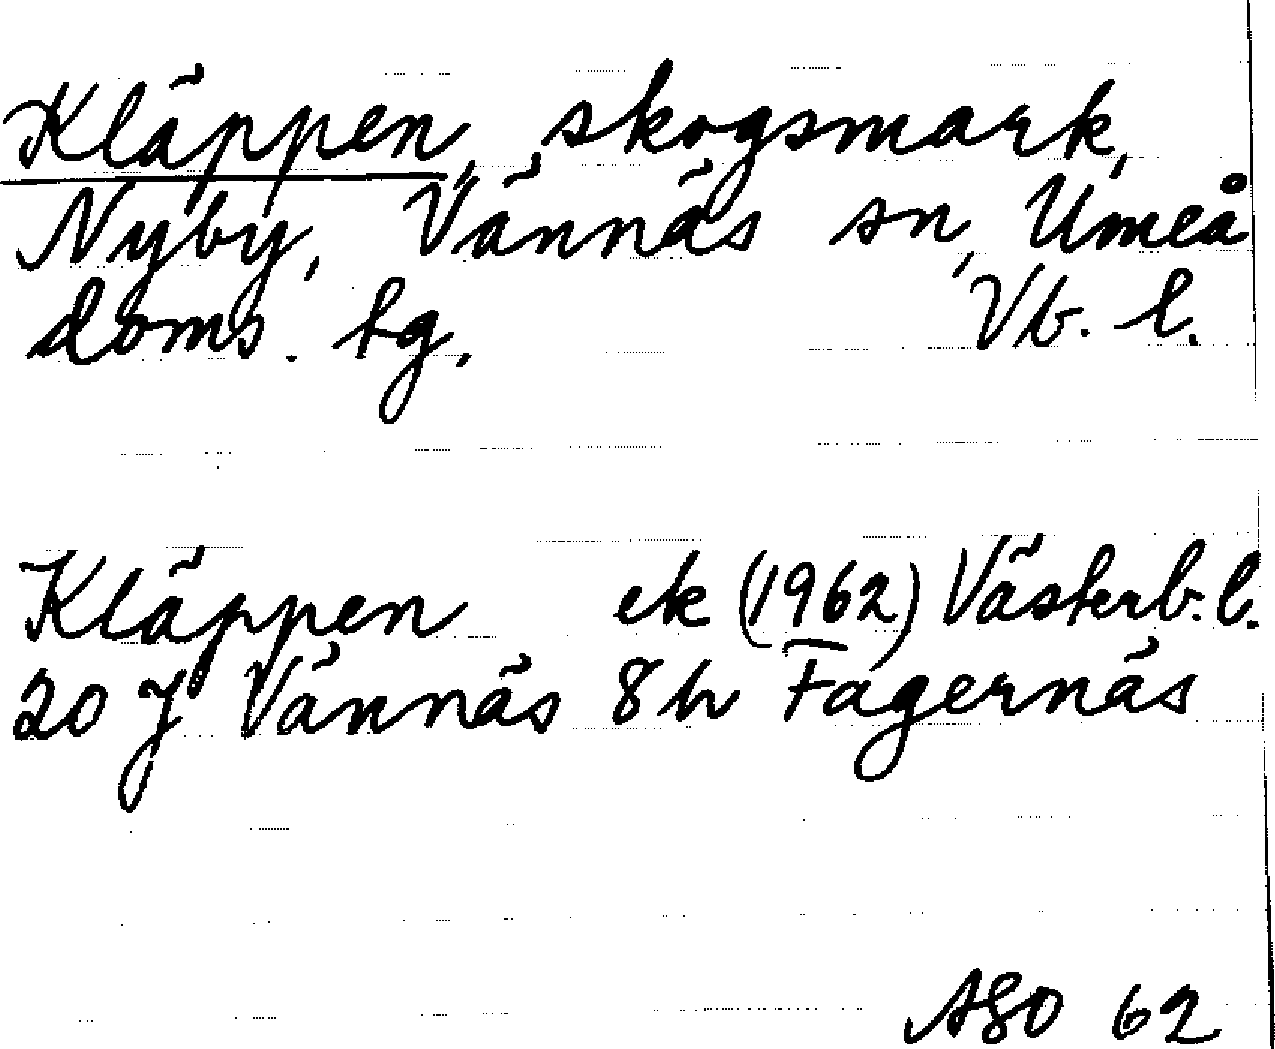 Kläppen, skogsmark,
Nyby, Vännäs sn, Umeå
doms. tg. Vb. l.
Kläppen ek (1962) Västerb. l.
20 J Vännäs 8 h Fagernäs
ASO 62